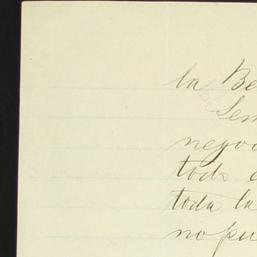 la Be
Sen
negoc
todo a
toda la
no pu